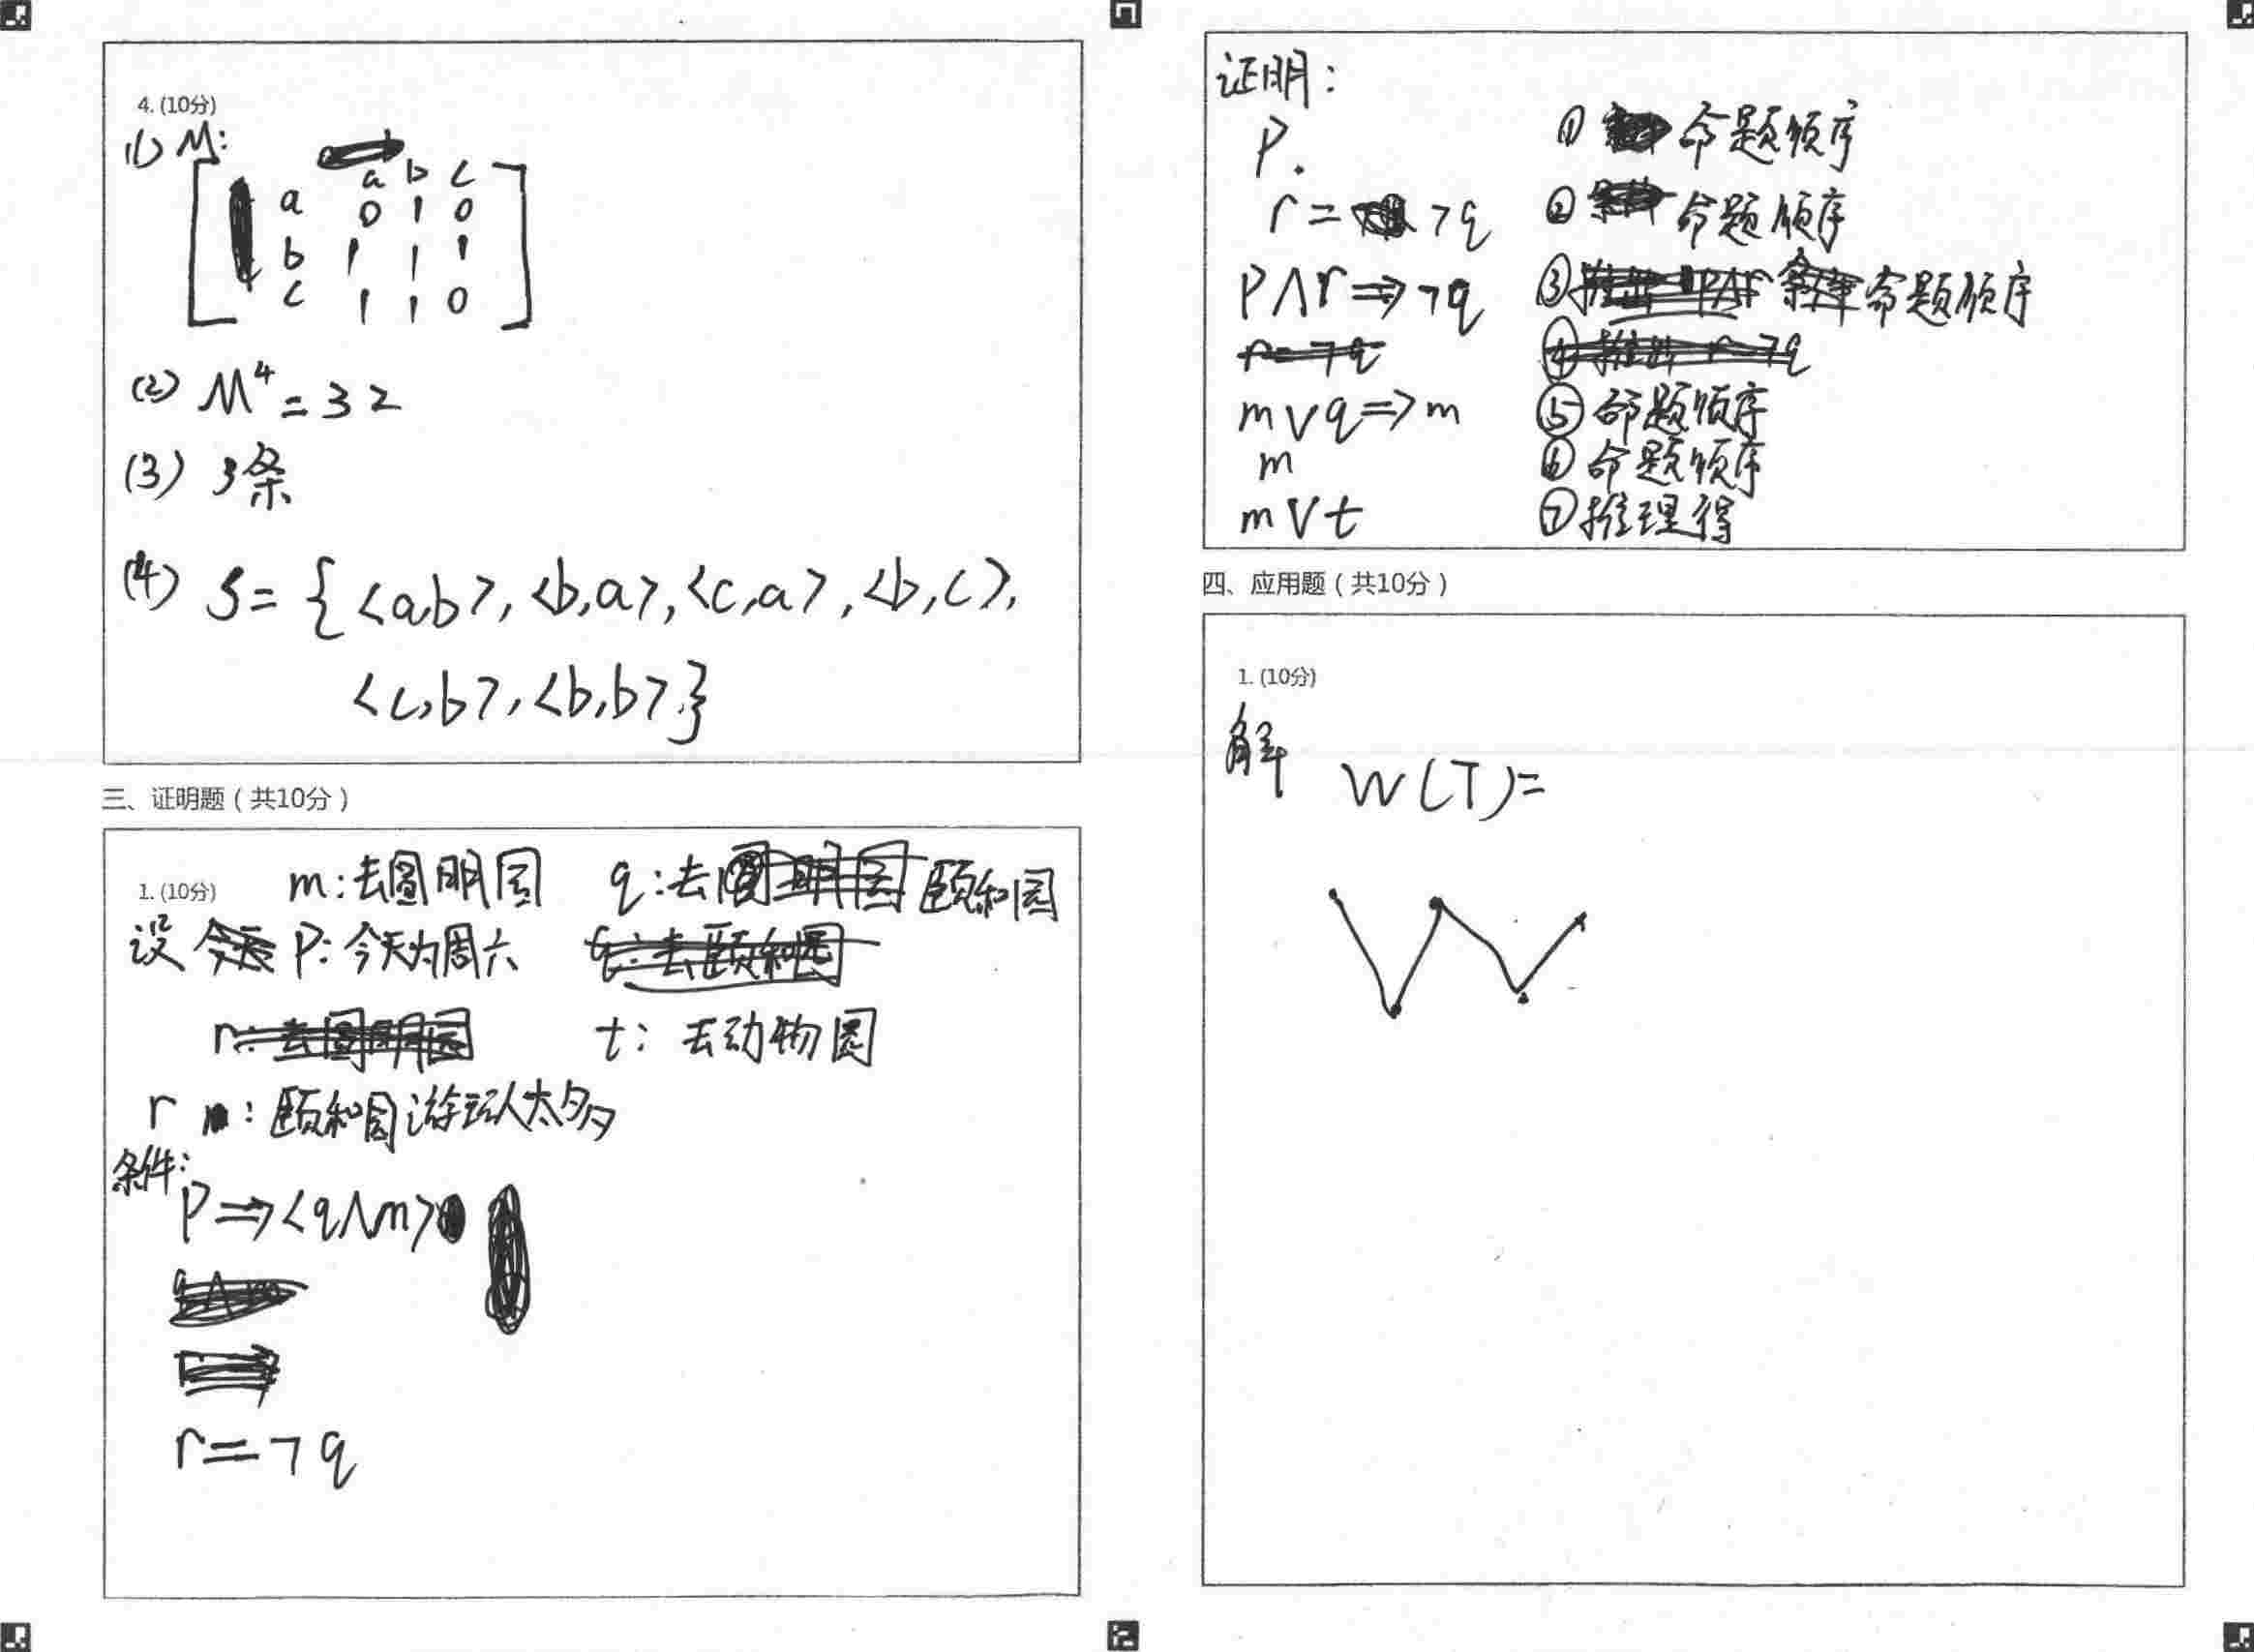 4. (10分)
(1) M:
a b c
a 0 1 0
b 1 1 1
c 1 1 0
(2) M⁴ = 32
(3) 3条
(4) S = { <a,b>, <b,a>, <c,a>, <b,c>,
<c,b>, <b,b> }
三、证明题（共10分）
m:去圆明园 q:去颐和园
1. (10分)
设 P:今天为周六
t: 去动物园
r : 颐和园游玩人太多
条件:
P⇒<q∧m>
r=¬q
证明:
P. ① 命题顺序
r=¬q ② 命题顺序
P∧r⇒¬q ③ 命题顺序
m∨q⇒m ⑤ 命题顺序
m ⑥ 命题顺序
m∨t ⑦ 推理得
四、应用题（共10分）
1. (10分)
解
W(T)=